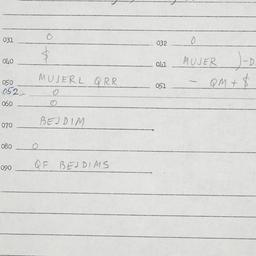 031 0 032 0
040 $ 041 MUJER )-D
050 MUJERL QRR 051 - QM + $
052 0
060 0
070 BEJDIM
080 0
090 QF BEJDIMS